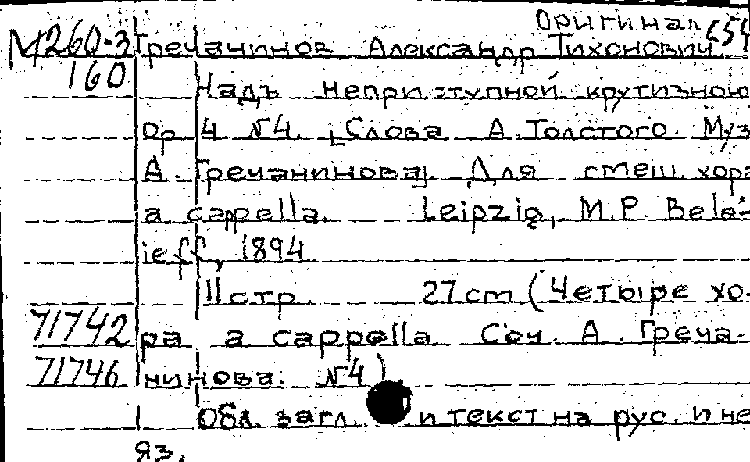 Оригинал 554
М260-3 Гречанинов Александр Тихонович
160 Надъ неприступной крутизною
Op 4 №4. [Слова А. Толстого. Муз
А. Гречанинова] Для смеш. хора
a cappella. Leipzig, M. P. Bela-
ieff, 1894
11 стр. 27 cm (Четыре хо-
71742 ра a cappella Соч. А. Греча-
71746 нинова. №4)
Обл. загл. и текст на рус. и не
яз.